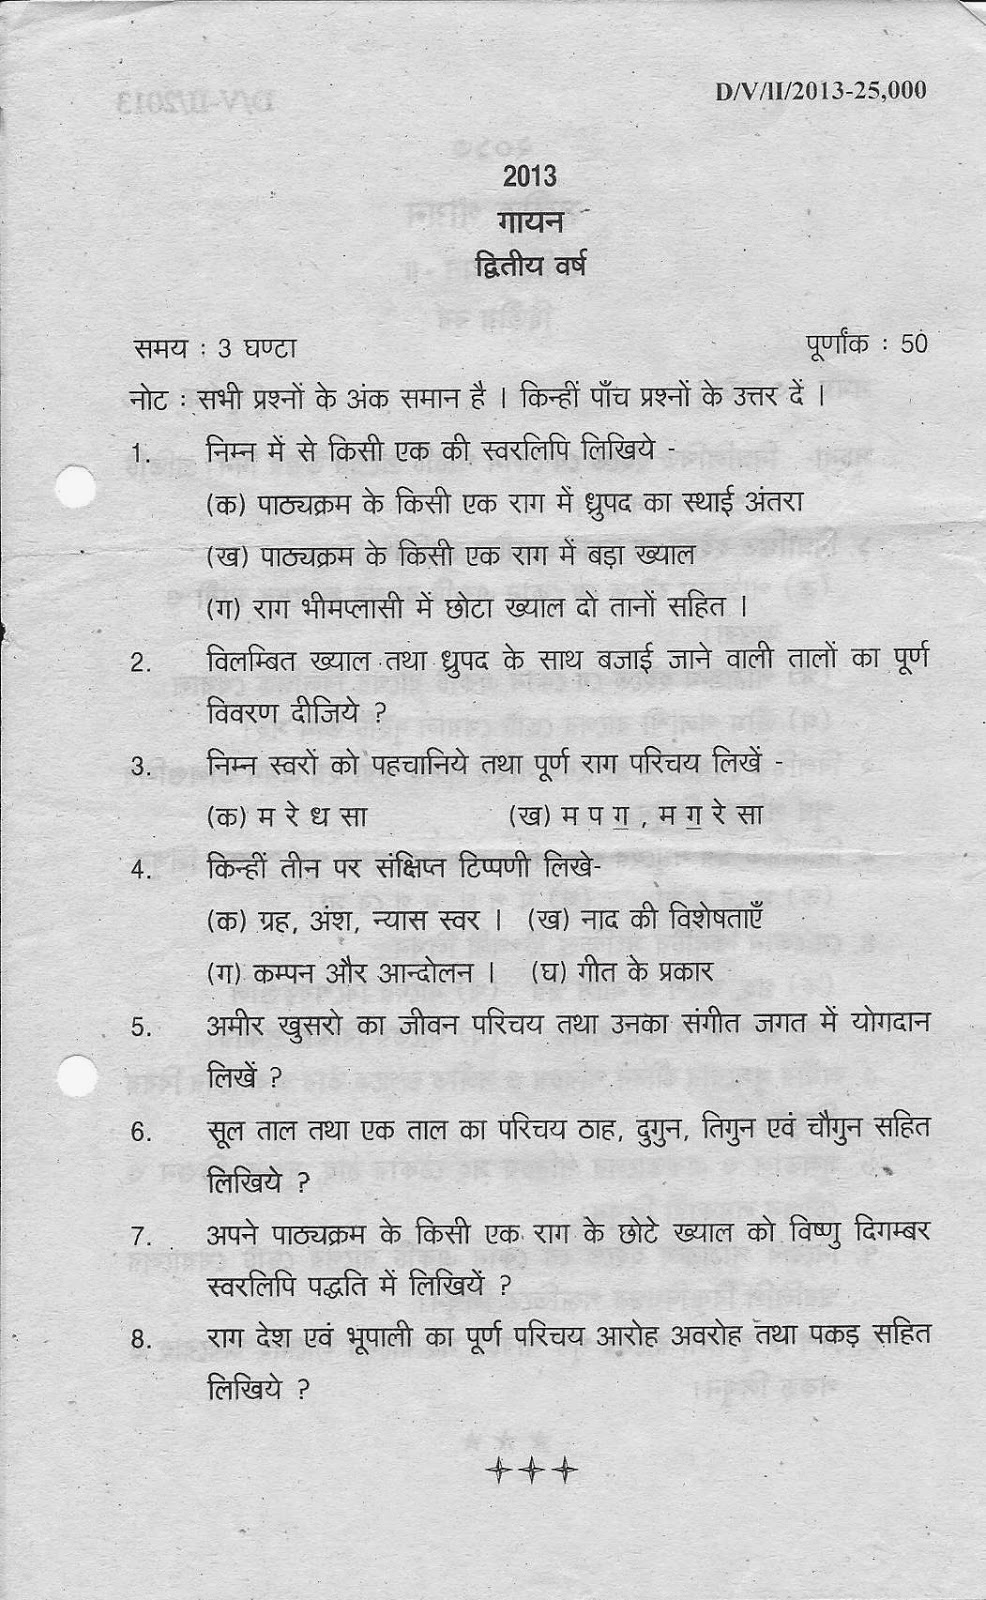 D/V/II/2013-25,000
2013
गायन
द्वितीय वर्ष
समय : 3 घण्टा पूर्णांक : 50
नोट : सभी प्रश्नों के अंक समान है । किन्हीं पाँच प्रश्नों के उत्तर दें ।
1. निम्न में से किसी एक की स्वरलिपि लिखिये -
(क) पाठ्यक्रम के किसी एक राग में ध्रुपद का स्थाई अंतरा
(ख) पाठ्यक्रम के किसी एक राग में बड़ा ख्याल
(ग) राग भीमप्लासी में छोटा ख्याल दो तानों सहित ।
2. विलम्बित ख्याल तथा ध्रुपद के साथ बजाई जाने वाली तालों का पूर्ण
विवरण दीजिये ?
3. निम्न स्वरों को पहचानिये तथा पूर्ण राग परिचय लिखें -
(क) म रे ध सा (ख) म प ग॒ , म ग॒ रे सा
4. किन्हीं तीन पर संक्षिप्त टिप्पणी लिखे-
(क) ग्रह, अंश, न्यास स्वर । (ख) नाद की विशेषताएँ
(ग) कम्पन और आन्दोलन । (घ) गीत के प्रकार
5. अमीर खुसरो का जीवन परिचय तथा उनका संगीत जगत में योगदान
लिखें ?
6. सूल ताल तथा एक ताल का परिचय ठाह, दुगुन, तिगुन एवं चौगुन सहित
लिखिये ?
7. अपने पाठ्यक्रम के किसी एक राग के छोटे ख्याल को विष्णु दिगम्बर
स्वरलिपि पद्धति में लिखियें ?
8. राग देश एवं भूपाली का पूर्ण परिचय आरोह अवरोह तथा पकड़ सहित
लिखिये ?